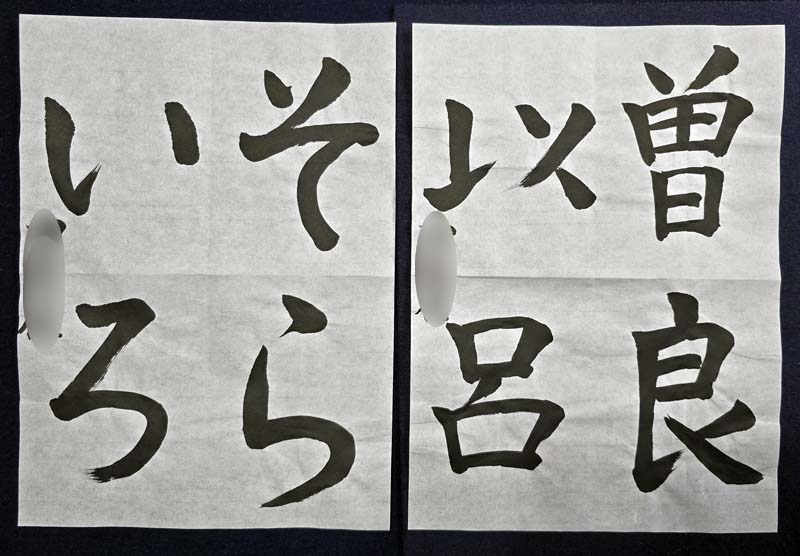 曽良
以呂
そら
いろ